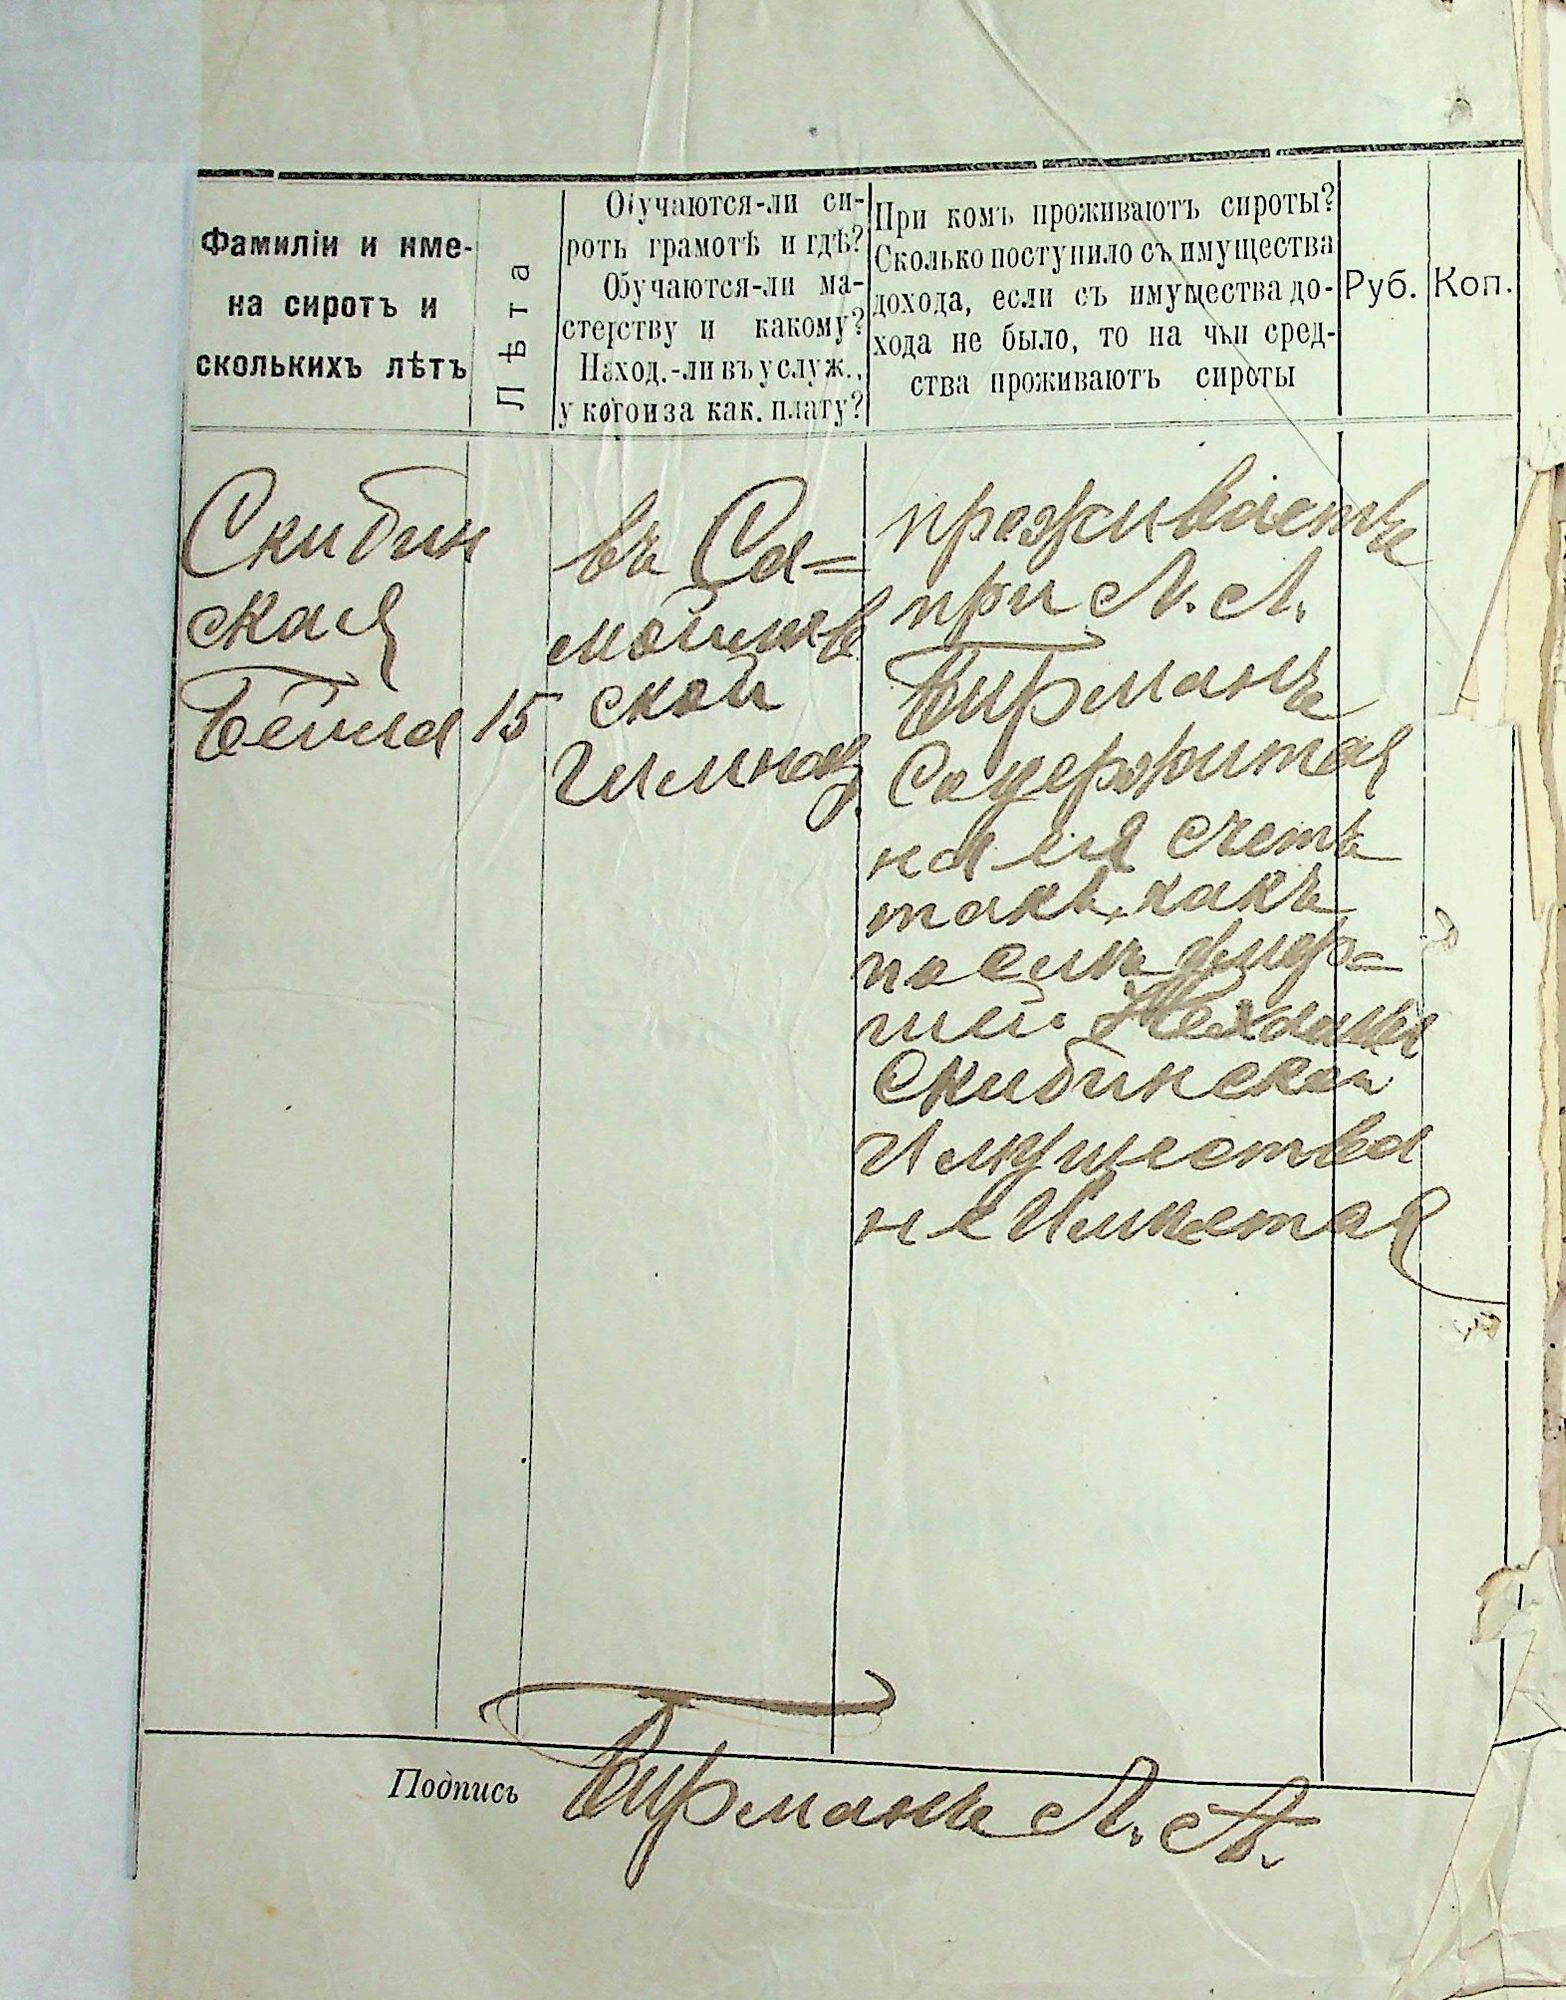 Фамиліи и име-
на сиротъ и
сколькихъ лѣтъ
Лѣта
Обучаются-ли си-
роты грамотѣ и гдѣ?
Обучаются-ли ма-
стерству и какому?
Наход.-ли въ услуж.,
у кого и за как. плату?
При комъ проживаютъ сироты?
Сколько поступило съ имущества
дохода, если съ имущества до-
хода не было, то на чьи сред-
ства проживаютъ сироты
Руб.
Коп.
Скибин
ская
Бейла
15
въ Са=
мойлов
ской
Гимназ.
проживаетъ
при А. А.
Бирманъ
Содержится
на ея счетъ
такъ, какъ
послѣ умер=
шей Нехамы
Скибинской
Имущества
не Имѣется
Подпись
Бирманъ А. А.